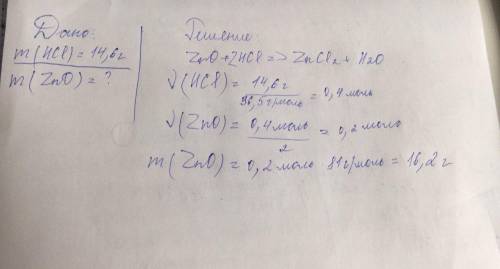 Дано:
m(HCl) = 14,6 г
m(ZnO) = ?
Решение:
ZnO + 2HCl => ZnCl2 + H2O
√(HCl) = 14,6 г / 36,5 г/моль = 0,4 моль
√(ZnO) = 0,4 моль / 2 = 0,2 моль
m(ZnO) = 0,2 моль 81 г/моль = 16,2 г